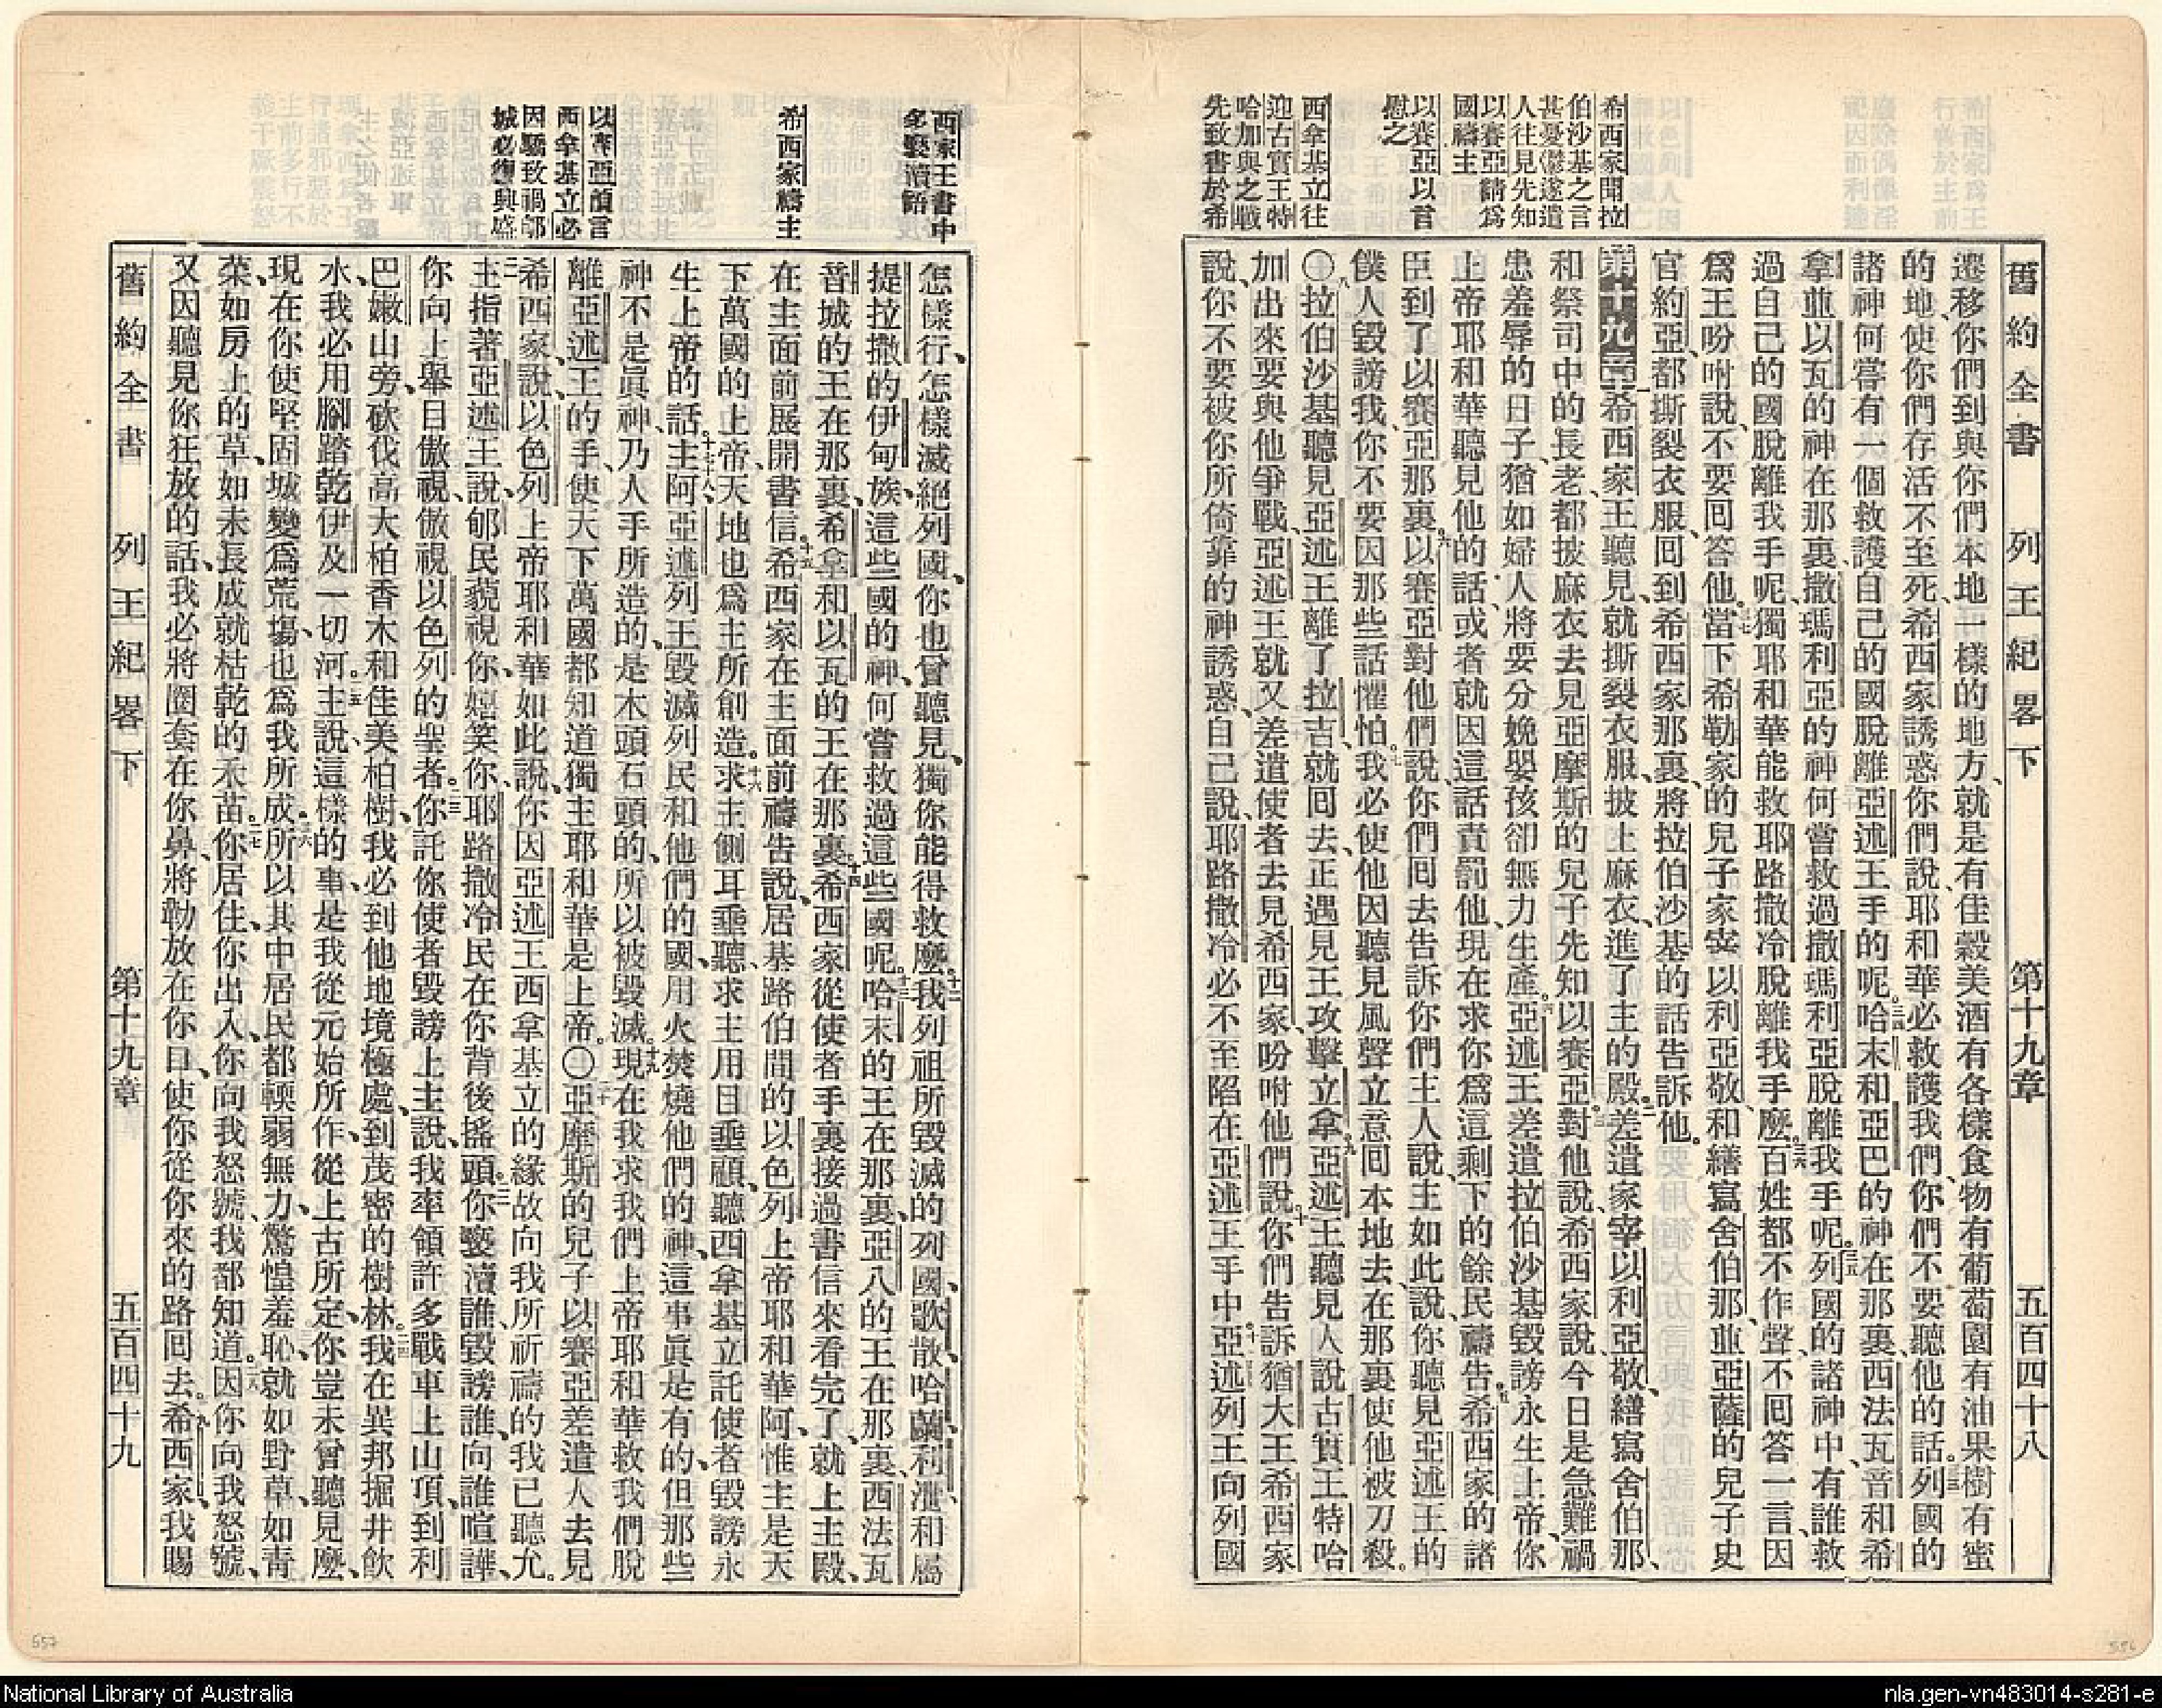 舊約全書 列王紀畧下 第十九章 五百四十八
希西家聞拉
伯沙基之言
甚憂鬱遂遣
人往見先知
以賽亞請爲
國禱主
以賽亞以言
慰之
西拿基立往
迎古實王特
哈加與之戰
先致書於希
遷移你們到與你們本地一樣的地方、就是有佳穀美酒有各樣食物有葡萄園有油果樹有蜜
的地、使你們存活不至死、希西家誘惑你們說、耶和華必救護我們、你們不要聽他的話。三三列國的
諸神何嘗有一個救護自己的國脫離亞述王手的呢。三四哈末和亞巴的神在那裏、西法瓦音和希
拿並以瓦的神在那裏、撒瑪利亞的神何嘗救過撒瑪利亞脫離我手呢。三五列國的諸神中、有誰救
過自己的國脫離我手呢、獨耶和華能救耶路撒冷脫離我手麼。三六百姓都不作聲、不回答一言、因
爲王吩咐說、不要回答他。三七當下希勒家的兒子家宰以利亞敬、和繕寫舍伯那、並亞薩的兒子史
官約亞、都撕裂衣服、回到希西家那裏、將拉伯沙基的話告訴他。
第十九章 一希西家王聽見、就撕裂衣服、披上麻衣、進了主的殿。二差遣家宰以利亞敬、繕寫舍伯那、
和祭司中的長老、都披麻衣去見亞摩斯的兒子先知以賽亞。三對他說、希西家說、今日是急難、禍
患羞辱的日子、猶如婦人將要分娩嬰孩卻無力生產。四亞述王差遣拉伯沙基毀謗永生上帝、你
上帝耶和華聽見他的話、或者就因這話責罰他、現在求你爲這剩下的餘民禱告。五希西家的諸
臣到了以賽亞那裏。六以賽亞對他們說、你們回去告訴你們主人說、主如此說、你聽見亞述王的
僕人毀謗我、你不要因那些話懼怕。七我必使他因聽見風聲立意回本地去、在那裏使他被刀殺。
〇八拉伯沙基聽見亞述王離了拉吉、就回去、正遇見王攻擊立拿。九亞述王聽見人說、古實王特哈
加出來要與他爭戰、亞述王就又差遣使者去見希西家、吩咐他們說。十你們告訴猶大王希西家
說、你不要被你所倚靠的神誘惑、自己說、耶路撒冷必不至陷在亞述王手中。十一亞述列王向列國
西家王書中
多褻瀆語
希西家禱主
以賽亞預言
西拿基立必
因驕致禍郇
城必復興盛
怎樣行、怎樣滅絕列國、你也曾聽見、獨你能得救麼。十二我列祖所毀滅的列國、歌散、哈蘭、利泄、和屬
提拉撒的伊甸族、這些國的神、何嘗救過這些國呢。十三哈末的王在那裏、亞八的王在那裏、西法瓦
音城的王在那裏、希拿和以瓦的王在那裏。十四希西家從使者手裏接過書信來看完了、就上主殿、
在主面前展開書信。十五希西家在主面前禱告說、居基路伯間的以色列上帝耶和華阿、惟主是天
下萬國的上帝、天地也爲主所創造。十六求主側耳垂聽、求主用目垂顧、聽西拿基立託使者毀謗永
生上帝的話。十七主阿、亞述列王毀滅列民和他們的國、十八用火焚燒他們的神、這事眞是有的、但那些
神不是眞神、乃人手所造的、是木頭石頭的、所以被毀滅。十九現在我求我們上帝耶和華救我們脫
離亞述王的手、使天下萬國都知道獨主耶和華是上帝。〇二十亞摩斯的兒子以賽亞差遣人去見
希西家、說、以色列上帝耶和華如此說、你因亞述王西拿基立的緣故向我所祈禱的我已聽允。
二一主指著亞述王說、郇民藐視你、嬉笑你、耶路撒冷民在你背後搖頭。二二你褻瀆誰、毀謗誰、向誰喧譁、
你向上舉目傲視、傲視以色列的聖者。二三你託你使者毀謗上主說、我率領許多戰車上山頂、到利
巴嫩山旁、砍伐高大柏香木和佳美柏樹、我必到他地境極處、到茂密的樹林。二四我在異邦掘井飲
水、我必用腳踏乾伊及一切河。二五主說、這樣的事是我從元始所作、從上古所定、你豈未曾聽見麼、
現在你使堅固城變爲荒場、也爲我所成。二六所以其中居民都輭弱無力、驚惶羞恥、就如野草、如青
菜、如房上的草、如未長成就枯乾的禾苗。二七你居住、你出入、你向我怒號、我都知道。二八因你向我怒號、
又因聽見你狂放的話、我必將圈套在你鼻、將勒放在你口、使你從你來的路回去。二九希西家、我賜
舊約全書 列王紀畧下 第十九章 五百四十九
557
556
National Library of Australia
nla.gen-vn483014-s281-e